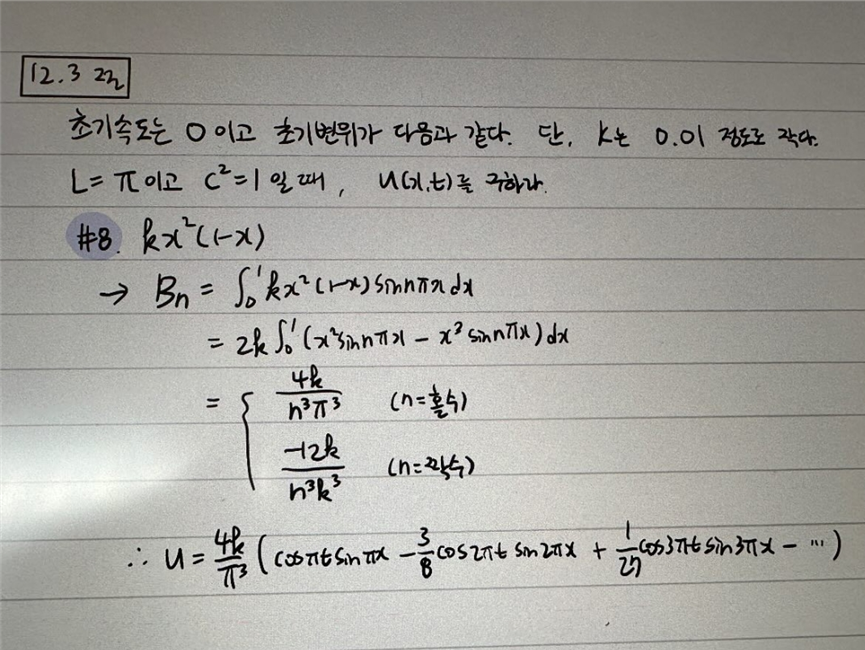 12.3 건
초기속도는 0이고 초기변위가 다음과 같다. 단, k는 0.01 정도로 작다.
L = π 이고 c² = 1 일 때, u(x,t)를 구하라.
#8. kx²(1-x)
→ Bn = ∫₀¹ kx²(1-x) sin nπx dx
= 2k ∫₀¹ (x² sin nπx - x³ sin nπx) dx
= { 4k / n³π³ (n=홀수)
-12k / n³k³ (n=짝수)
∴ u = 4k/π³ ( cos πt sin πx - 3/8 cos 2πt sin 2πx + 1/27 cos 3πt sin 3πx - ··· )